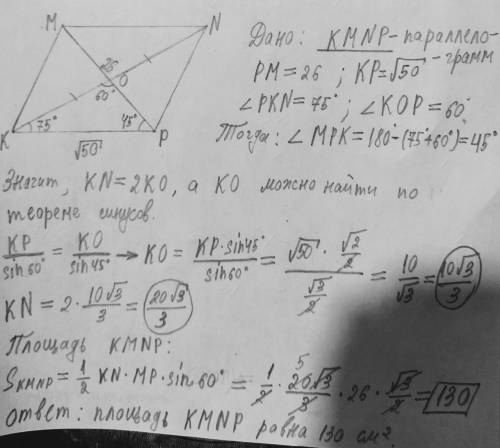 M N
26
O
60°
K 75° 45° P
√50
Дано: KMNP-параллело-
-грамм
PM=26 ; KP=√50
∠PKN=75° ; ∠KOP=60°
Тогда: ∠MPK=180°-(75°+60°)=45°
Значит, KN=2KO, а KO можно найти по
теореме синусов.
KP/sin60° = KO/sin45° → KO = KP·sin45°/sin60° = (√50 · √2/2)/(√3/2) = 10/√3 = 10√3/3
KN = 2·10√3/3 = 20√3/3
Площадь KMNP:
S_KMNP = 1/2 KN·MP·sin60° = 1/2 · 20√3/3 · 26 · √3/2 = 130
5
ответ: площадь KMNP равна 130 см²